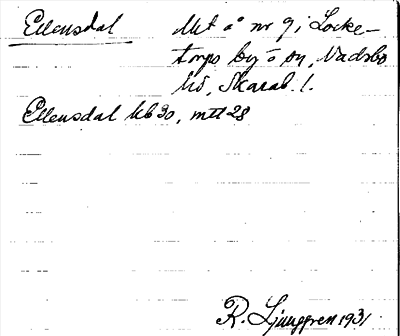 Ellensdal Utt å nr 9 i Locke-
torps by o sn, Vadsbo
hd, Skarab. l.
Ellensdal kb 30, mtl 28
R. Ljunggren 1931